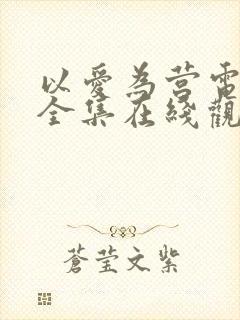 以愛為营電
全集在綫觀
蒼莹文紫